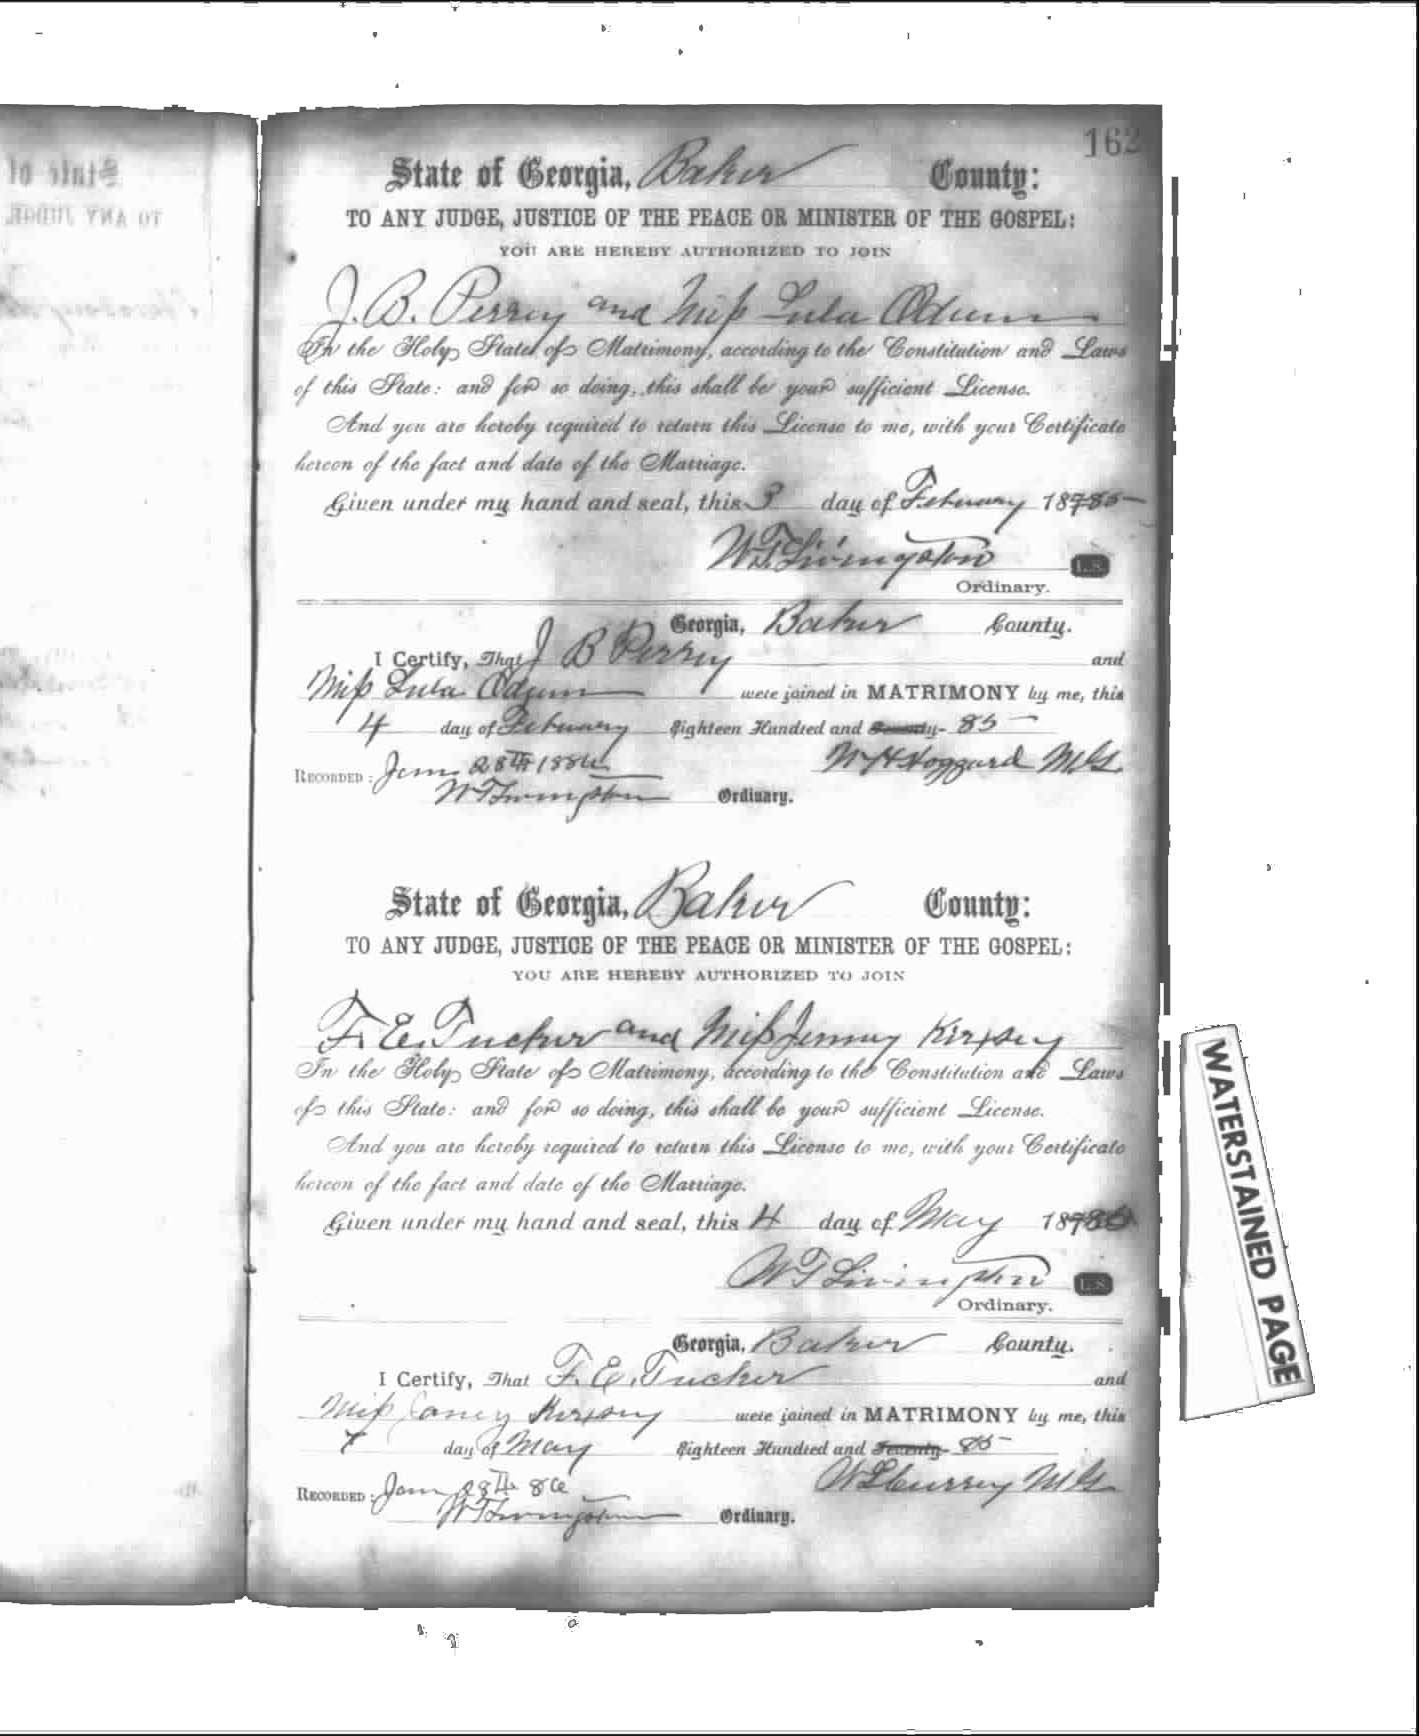 162
State of Georgia, Baker County:
TO ANY JUDGE, JUSTICE OF THE PEACE OR MINISTER OF THE GOSPEL:
YOU ARE HEREBY AUTHORIZED TO JOIN
J. B. Perry and Miss Lula Odum
In the Holy State of Matrimony, according to the Constitution and Laws
of this State: and for so doing, this shall be your sufficient License.
And you are hereby required to return this License to me, with your Certificate
hereon of the fact and date of the Marriage.
Given under my hand and seal, this 3 day of February 18785
W. T. Livingston L.S.
Ordinary.
Georgia, Baker County.
I Certify, That J B Perry and
Miss Lula Odum were joined in MATRIMONY by me, this
4 day of February Eighteen Hundred and Seventy- 85
W H Hoggard M G
RECORDED: Jany 28th 1886
W T Livingston Ordinary.
State of Georgia, Baker County:
TO ANY JUDGE, JUSTICE OF THE PEACE OR MINISTER OF THE GOSPEL:
YOU ARE HEREBY AUTHORIZED TO JOIN
F. E. Tucker and Miss Kirksey
In the Holy State of Matrimony, according to the Constitution and Laws
of this State: and for so doing, this shall be your sufficient License.
And you are hereby required to return this License to me, with your Certificate
hereon of the fact and date of the Marriage.
Given under my hand and seal, this 4 day of May 187
W T Livingston L.S.
Ordinary.
Georgia, Baker County.
I Certify, That F. E. Tucker and
Miss were joined in MATRIMONY by me, this
7 day of May Eighteen Hundred and Seventy- 85
M G
RECORDED: Jany 28th 86
W T Livingston Ordinary.
WATERSTAINED PAGE